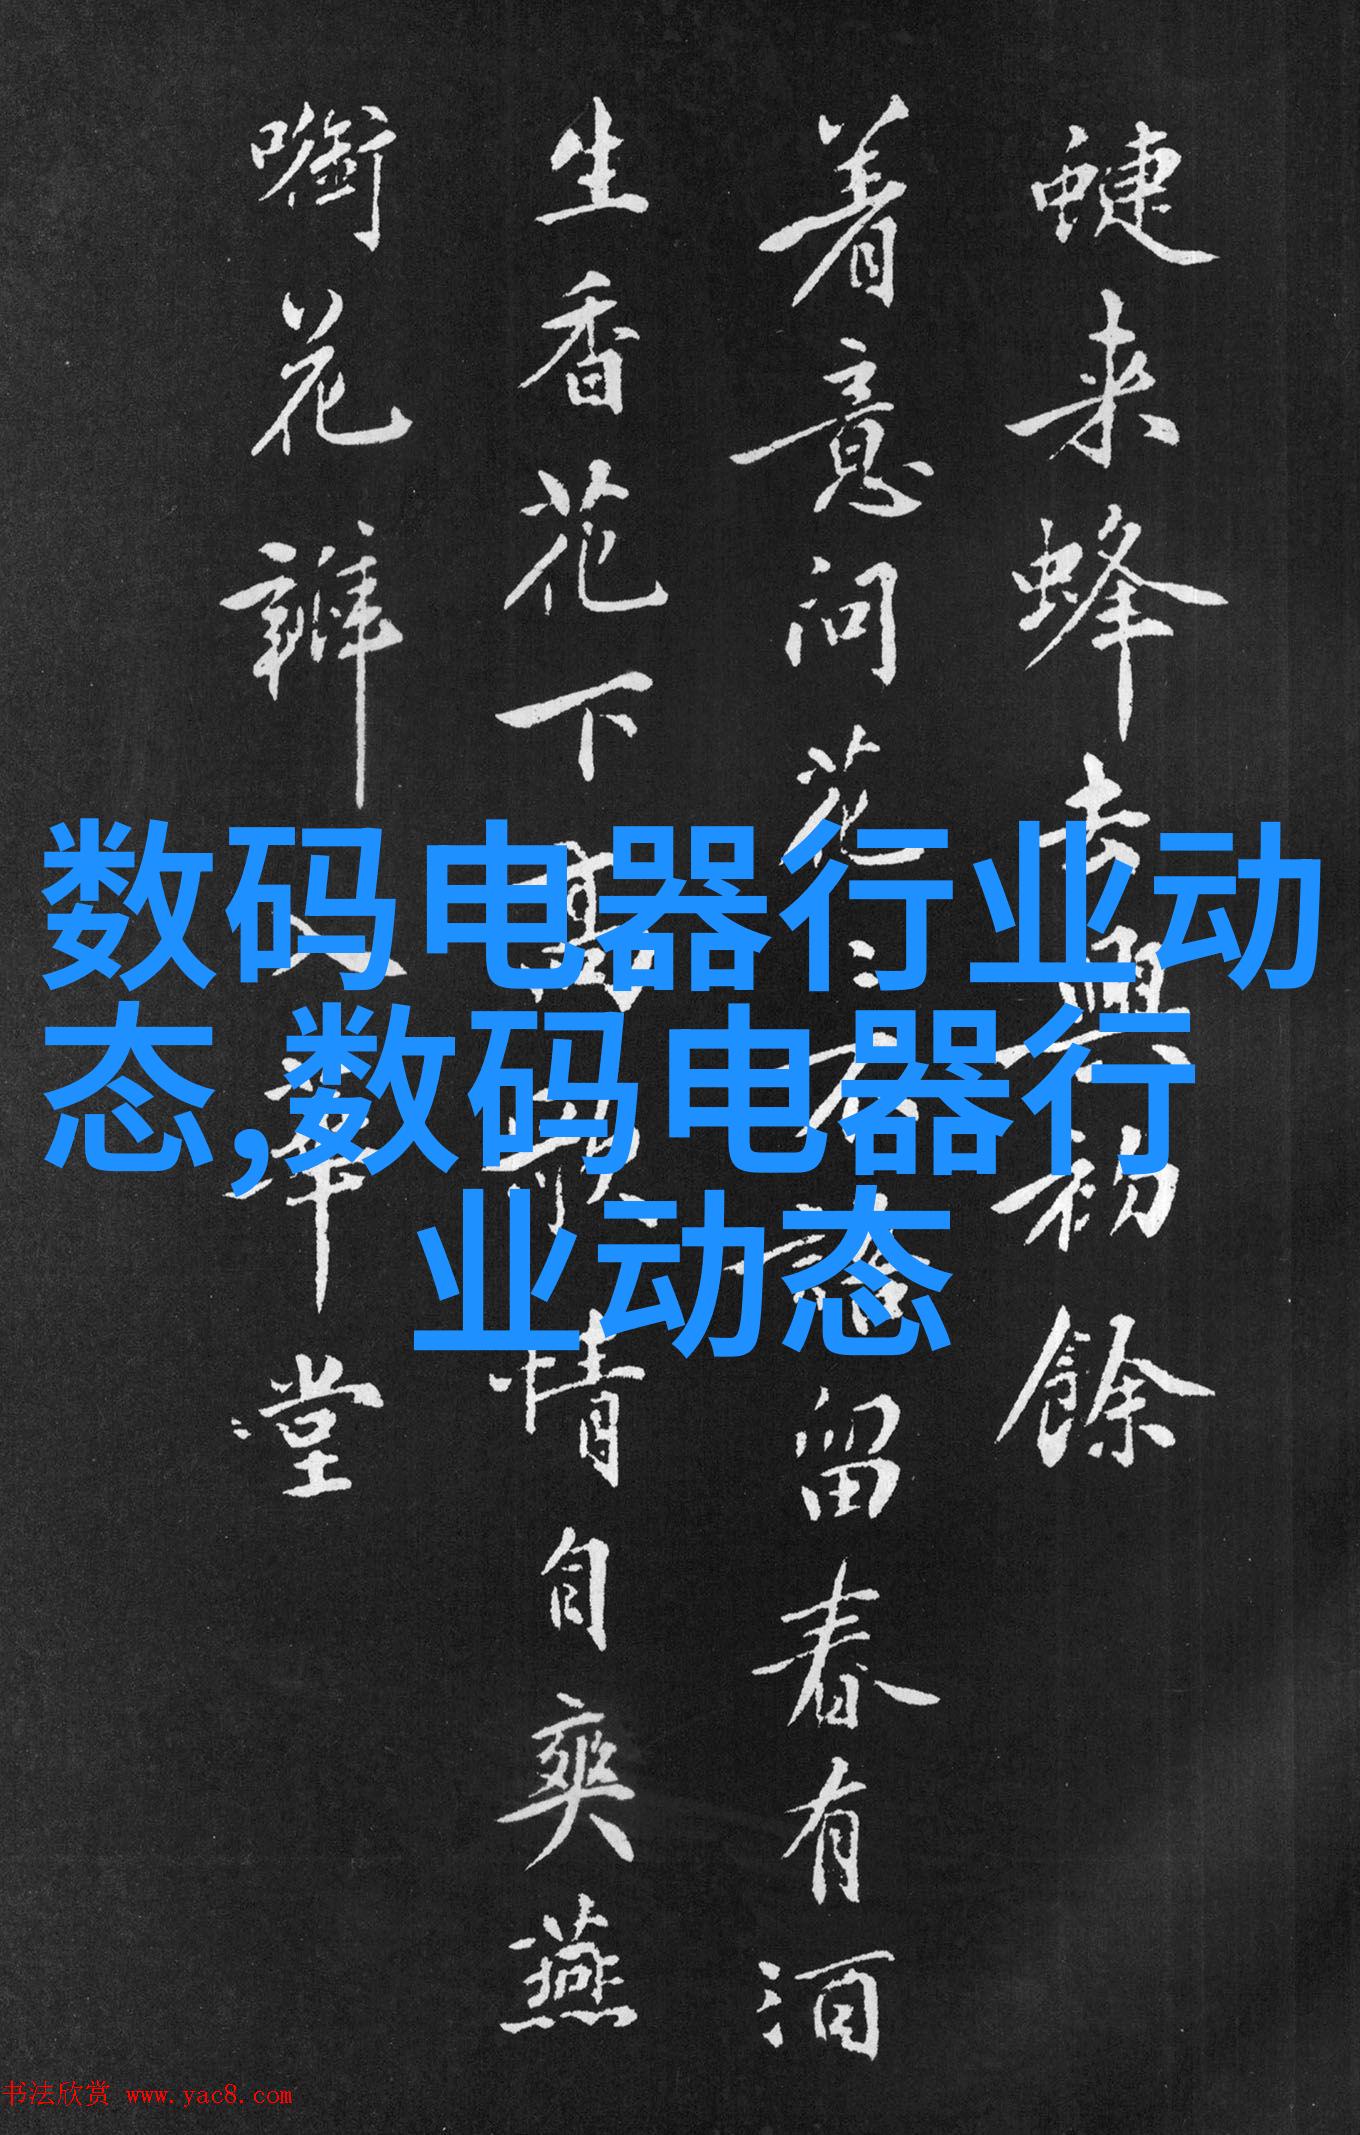 蜨来蜂去興初餘
着意问花〻不語留春有酒
生香花下高歌情自爽燕
花瓣入華堂
数码电器行业动
态,数码电器行
业动态
书法欣赏 www.yac8.com